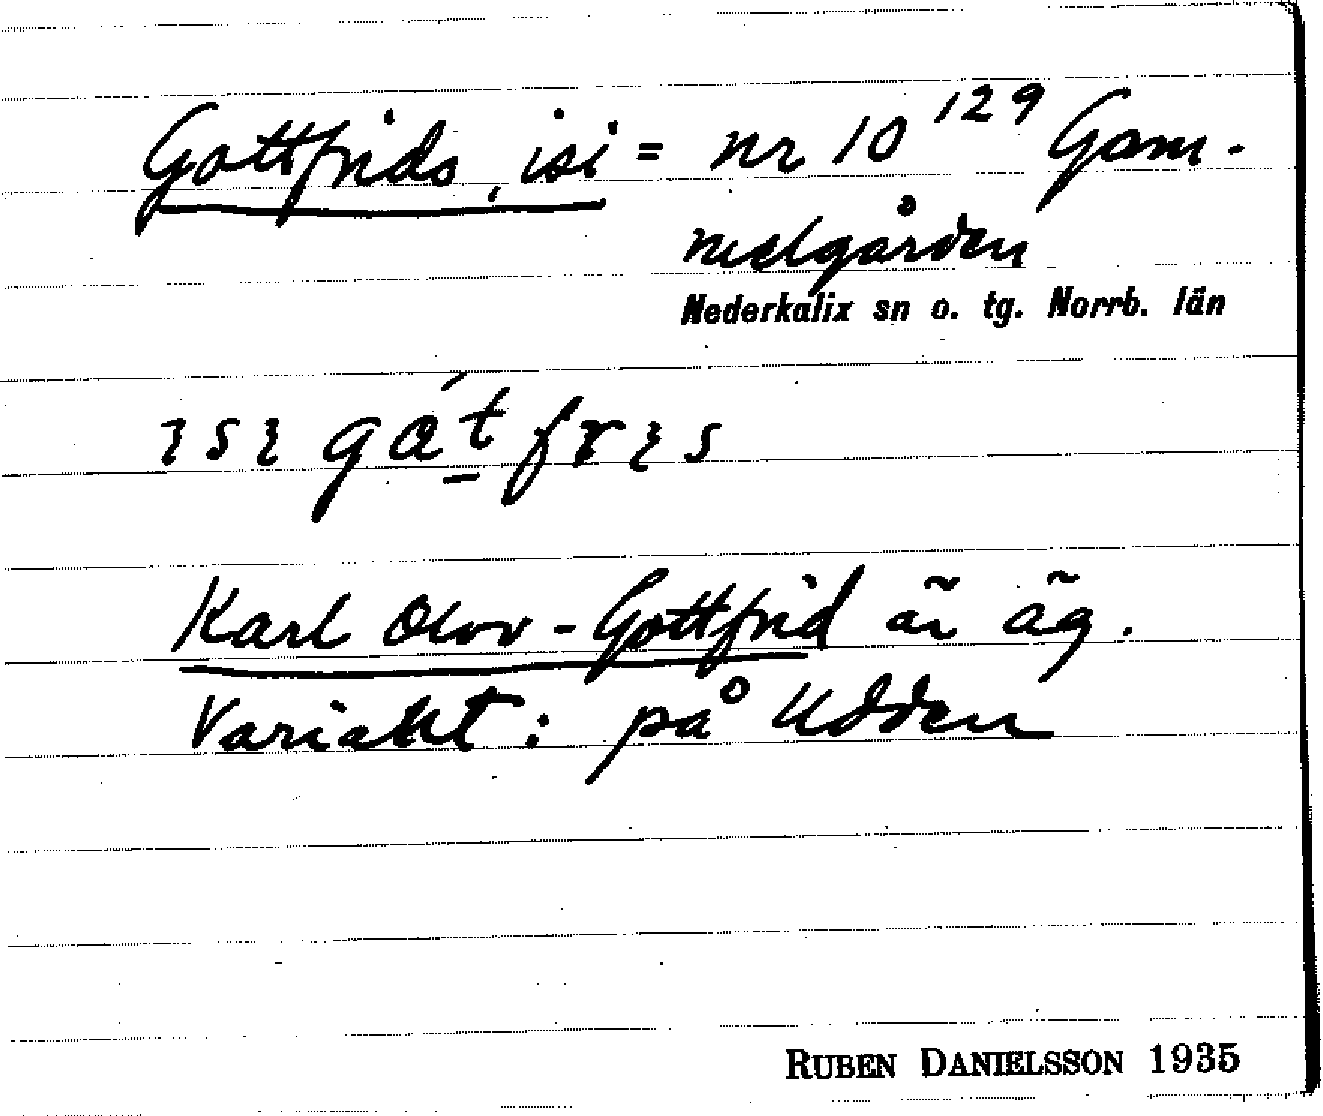 Gottfrids, isi = nr 10 129 Gam-
melgården
Nederkalix sn o. tg. Norrb. län
ɩsɩ gát frɩs
Karl Olov-Gottfrid är äg.
Variant: på Udden
RUBEN DANIELSSON 1935